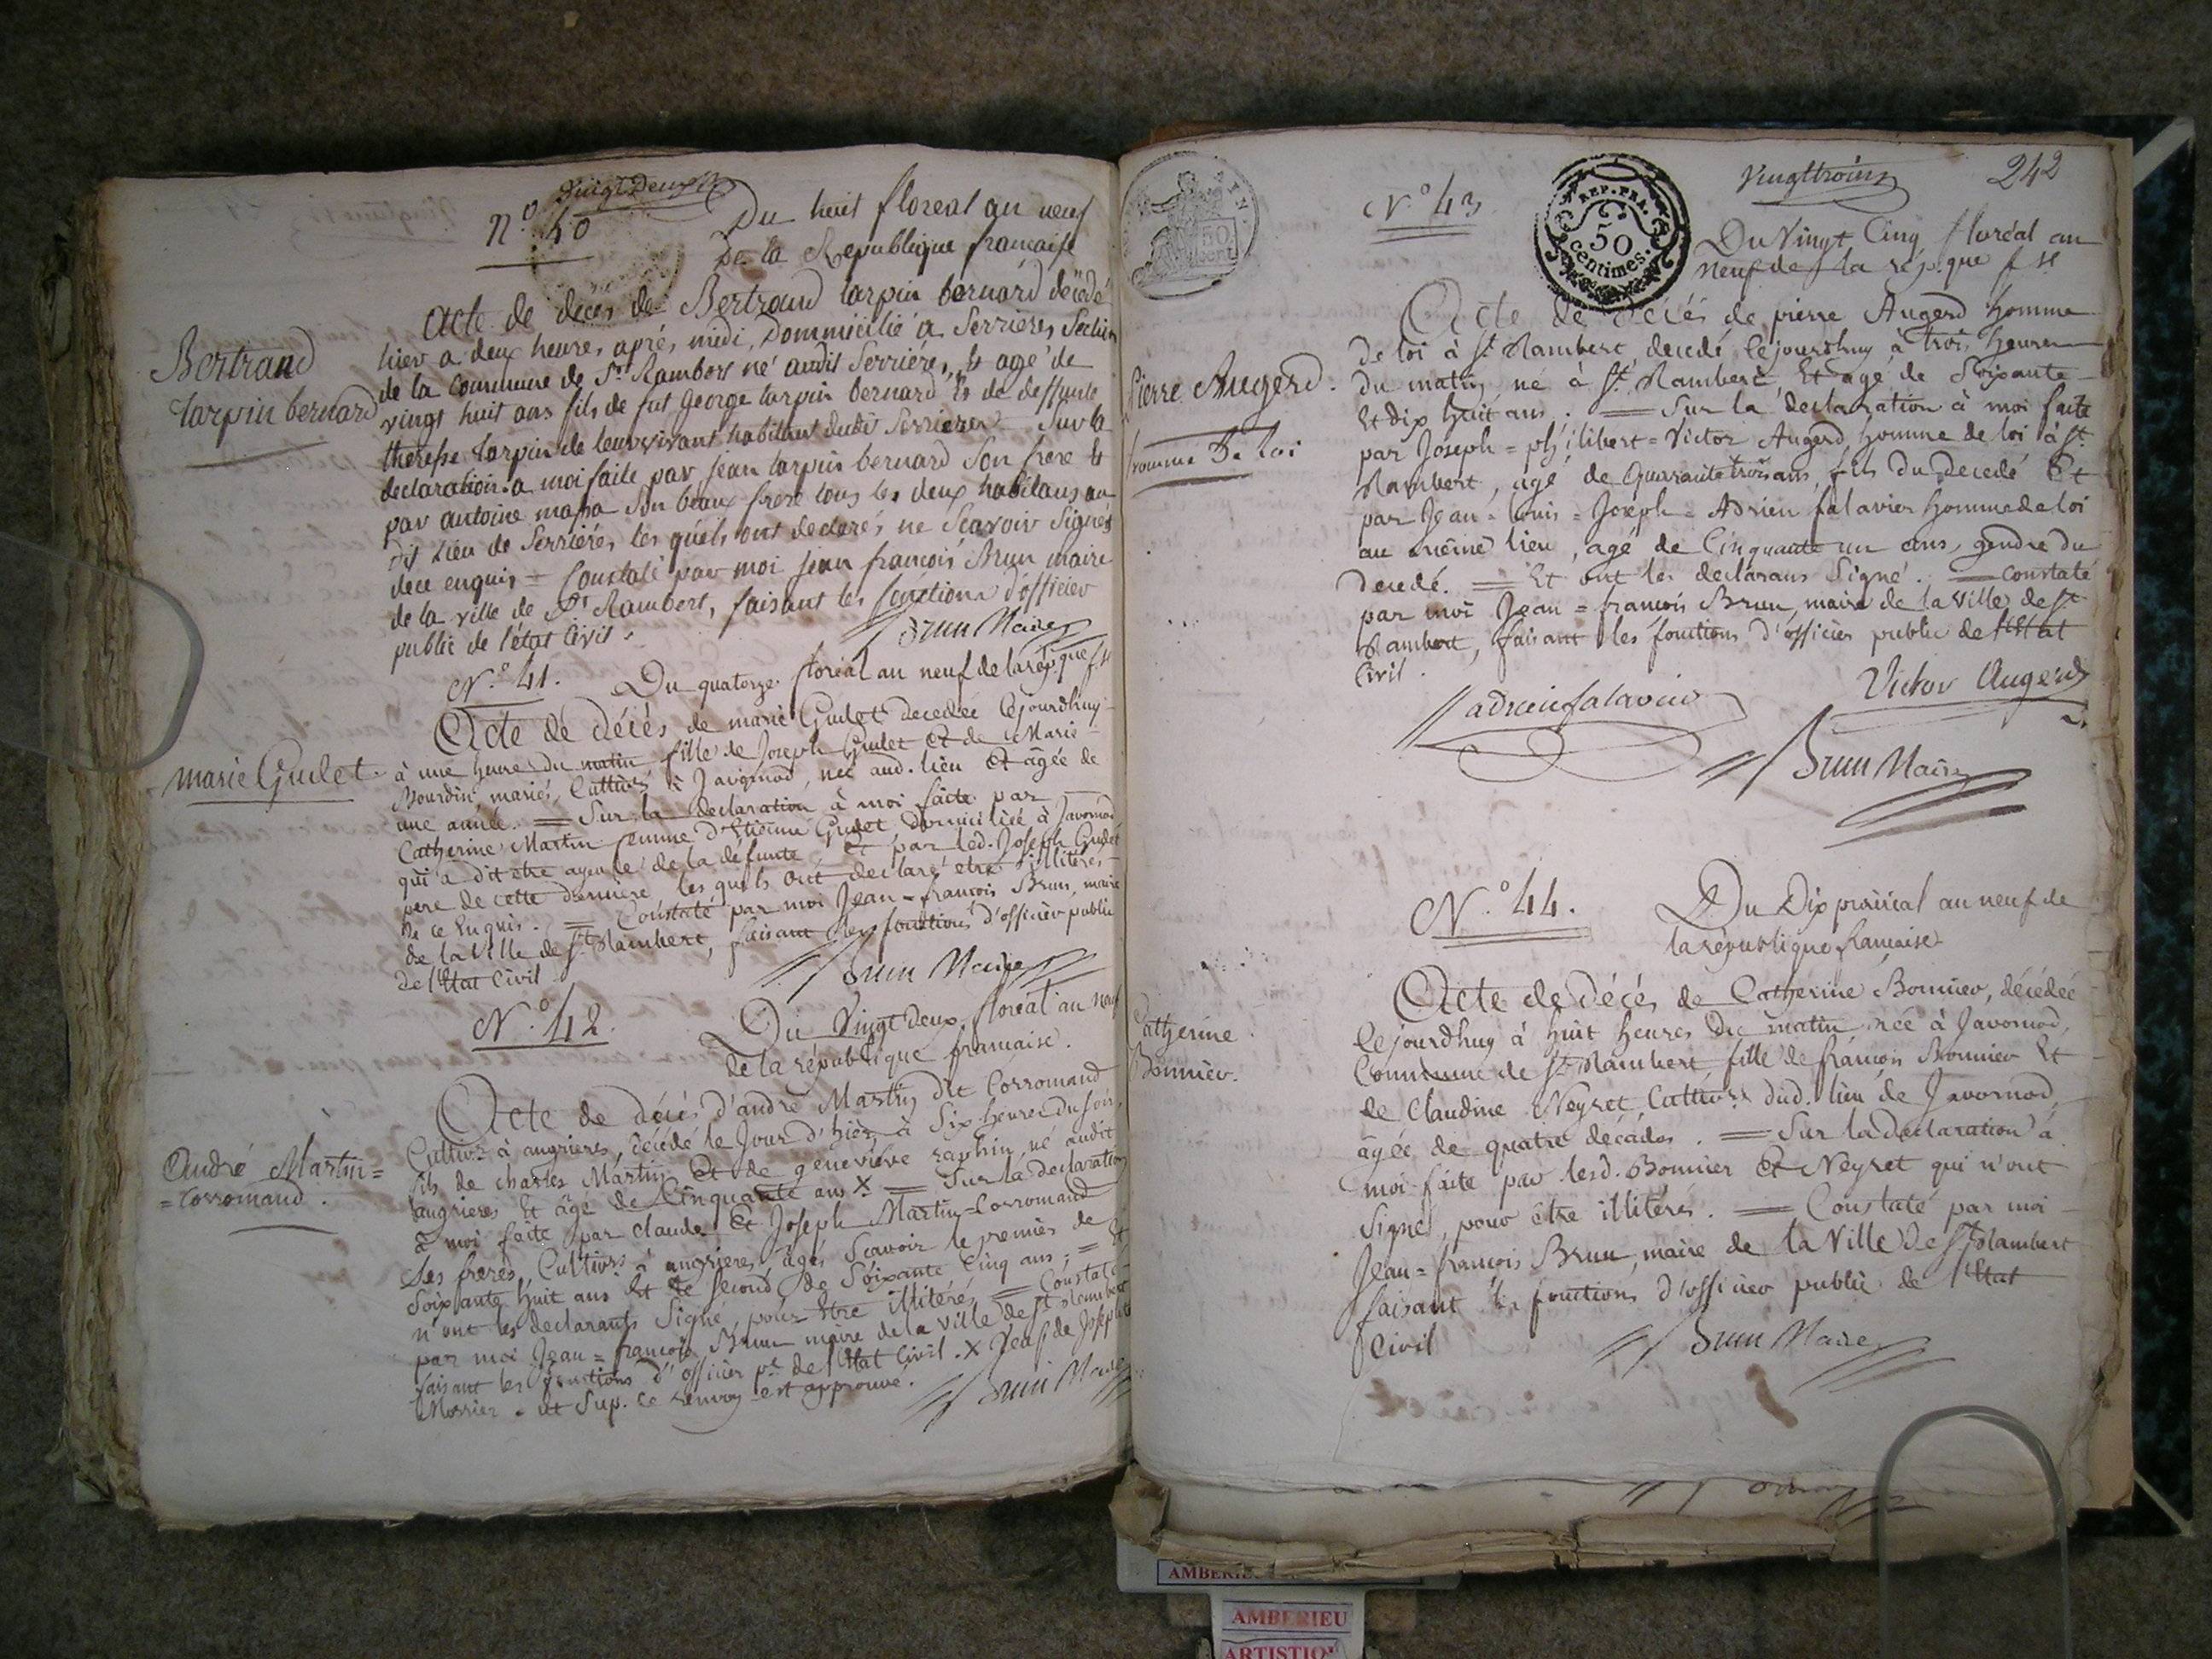 Vingt Deux
N.º 40
Du huit floreal an neuf
de la Republique francaise
Acte de décès de Bertrand tarpin bernard décédé
hier a deux heures aprés midi, Dommicilié a Serrieres Section
de la Commune de St Rambert né audit Serriéres, et agé de
vingt huit ans fils de fut george tarpin bernard et de deffunte
therese tarpin de leur vivant habitant dudit Serrieres = Sur la
declaration a moi faite par jean tarpin bernard Son frere et
par antoine Son beaux frere tous les deux habitans au
dit Lieu de Serriéres les quels ont declarés ne Scavoir Signés
de ce enquis = Constaté par moi jean francois Brun maire
de la ville de St Rambert, faisant les fonctions d'officier
public de l'état Civil.
Brun Maire
Bertrand
tarpin bernard
N.º 41.
Du quatorze floréal an neuf de la répque fse
Acte de Décès de marie Gudet decedée Cejourdhuy
à une heure du matin fille de Joseph Gudet et de Marie
Bourdin, mariés, Cultivrs à Javornod, née aud. lieu et âgée de
une année. = Sur la declaration à moi faite par
Catherine Martin femme d'Etienne Gudet domiciliée à Javornod
qui a dit etre ayeule de la défunte, et par led. Joseph Gudet
pere de cette derniere les quels ont declaré etre illitérés
de ce Enquis. = Constaté par moi Jean = francois Brun, maire
de la Ville de St Rambert, faisant les fonctions d'officier public
de l'Etat Civil
Brun Maire
marie Gudet.
N.º 42.
Du Vingt deux floréal an neuf
de la république francaise.
Acte de décès d'andré Martin dit Corromand
Cultivr à angrieres, décédé le Jour d'hier à Six heures du soir,
fils de charles Martin et de genevieve raphin, né audit
angrieres Et âgé de Cinquante ans X. = Sur la declaration
à moi faite par claude Et Joseph Martin=Corromand
Ses freres, Cultivrs à angrieres, âgés Scavoir le premier de
Soixante huit ans et le second de Soixante Cinq ans. = Et
n'ont les declarants Signé, pour Etre illitérés = Constaté
par moi Jean = francois Brun maire de la Ville de St Rambert
faisant les fonctions d'officier pc de l'Etat Civil. X Veuf de Josephte
et Sup. Ce renvoy est approuvé.
Brun Maire
André Martin=
=Corromand.
N.º 43
Vingttrois
242
REP. FRA.
50
centimes.
Du Vingt Cinq floréal an
neuf de la répque fse
Acte de décès de pierre Augerd homme
de loi à St Rambert, decedé Cejourdhuy à trois heures
du matin, né à St Rambert, Et agé de Soixante
Et dix huit ans. = Sur la declaration à moi faite
par Joseph = philibert = Victor Augerd, homme de loi à St
Rambert, agé de Quarante trois ans, fils du Decedé Et
par Jean = Louis = Joseph = Adrien falavier homme de loi
au même lieu, agé de Cinquante un ans, gendre du
decedé. = Et ont les declarans Signé. = Constaté
par moi Jean = francois Brun, maire de la Ville de St
Rambert, faisant les fonctions d'officier public de l'Etat
Civil.
adrien falavier
Victor Augerd
Brun Maire
Pierre Augerd.
homme De Loi
N.º 44.
Du Dix prairial an neuf de
la république francaise
Acte de décès de Catherine Bonnier, décédée
Cejourdhuy à huit heures du matin née à Javornod,
Commune de St Rambert, fille de francois Bonnier Et
de Claudine Neyret, Cultivrs dud. lieu de Javornod,
âgée de quatre décades. = Sur la Declaration à
moi faite par lesd. Bonnier et Neyret qui n'ont
Signé, pour être illitérés. = Constaté par moi
Jean = francois Brun, maire de la Ville de St Rambert
faisant les fonctions d'officier public de l'Etat
Civil
Brun Maire
Catherine
Bonnier.
AMBERIEU
ARTISTIQU